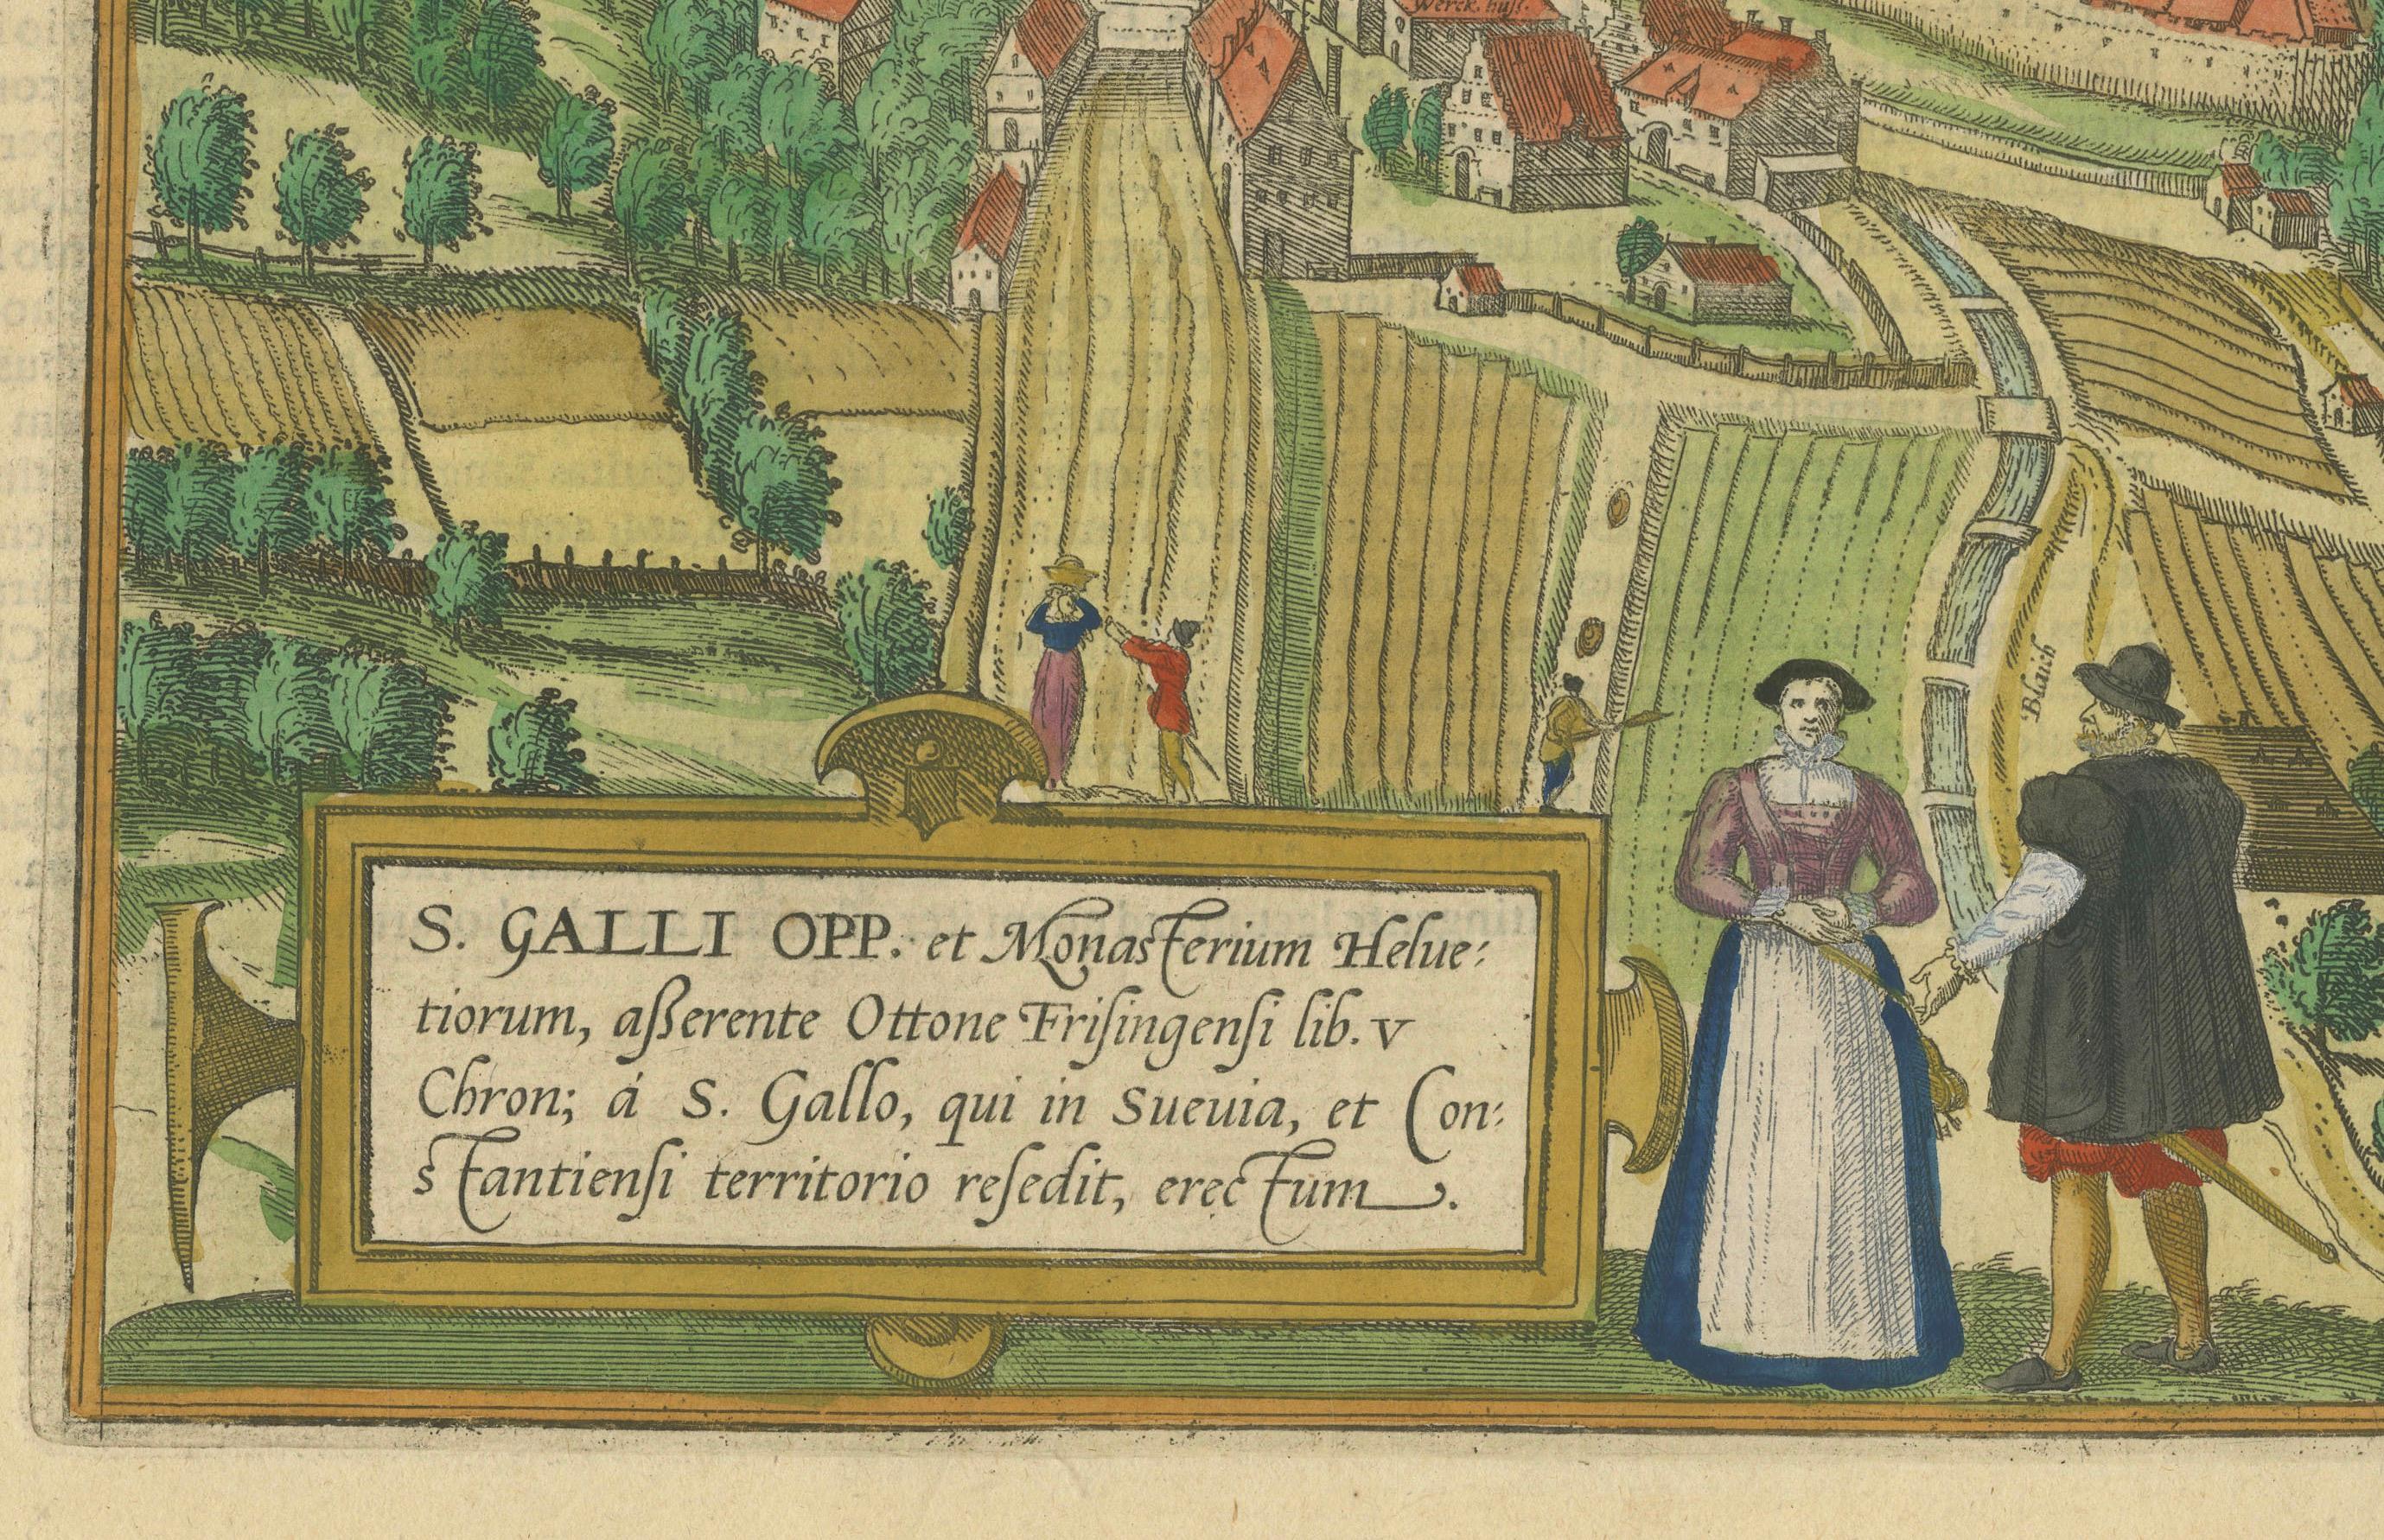 Werck. huſſ.
Blaich
S. GALLI OPP. et Monasterium Helue:
tiorum, aſſerente Ottone Friſingenſi lib. V
Chron; á S. Gallo, qui in Sueuia, et Con:
stantienſi territorio reſedit, erectum.